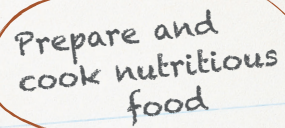 Prepare and
cook nutritious
food